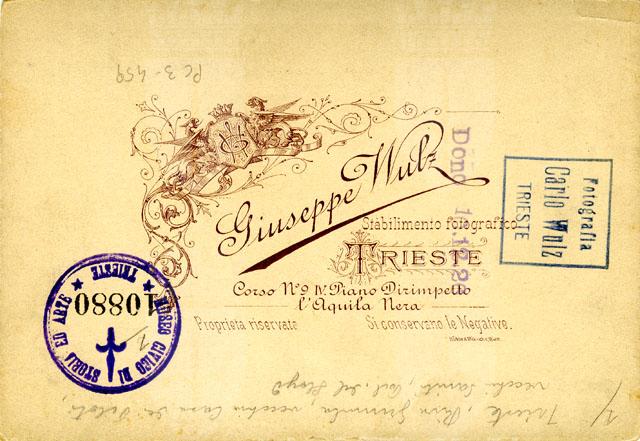 Pc 3-459
Giuseppe Wulz
Stabilimento fotografico
TRIESTE
Corso Nº9 IV Piano Dirimpetto
l'Aquila Nera
Proprietà riservata Si conservano le Negative.
Dono
Fotografia
Carlo Wulz
TRIESTE
MUSEO CIVICO DI STORIA ED ARTE
★ TRIESTE ★
10880
1/
1/ Trieste, Riva Grumula, vecchia Casa dei Piloti,
vecchia Sanità, del Lloyd